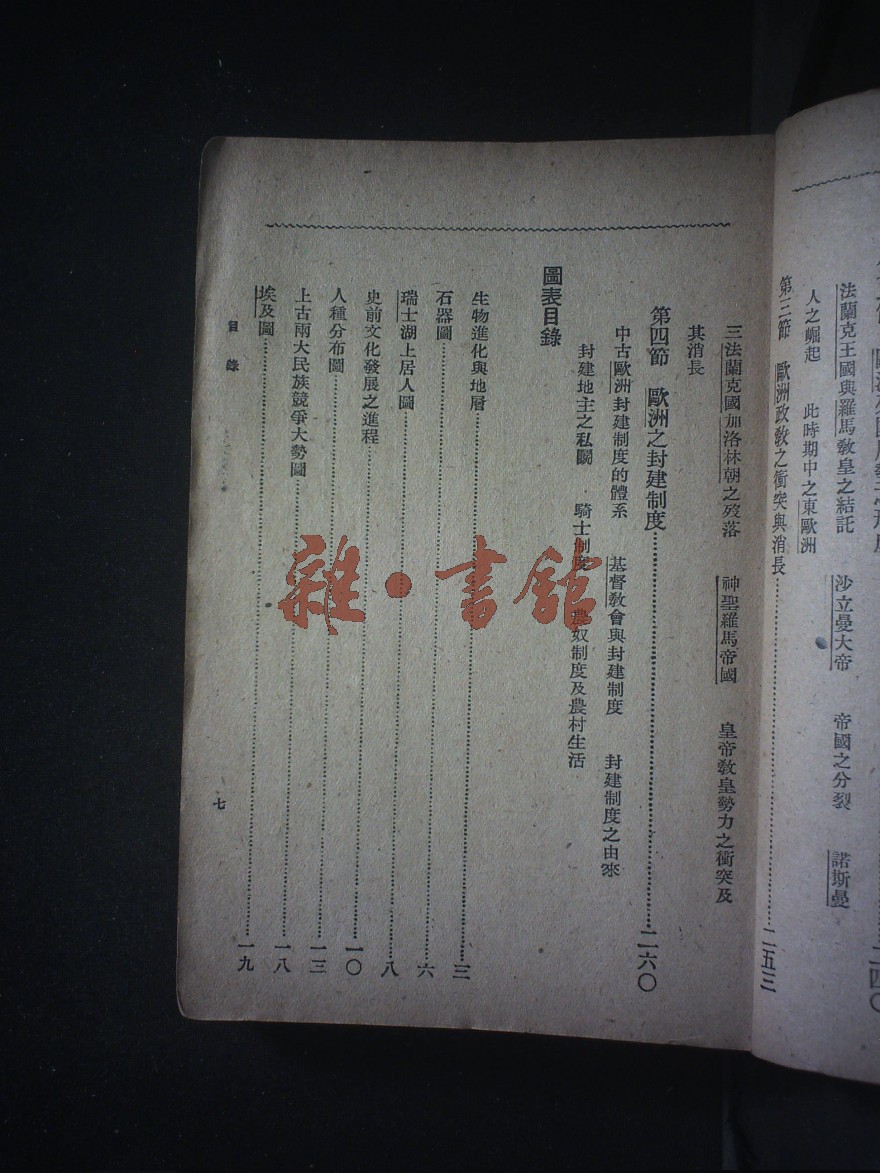 法蘭克王國與羅馬教皇之結託　沙立曼大帝　帝國之分裂　諾斯曼
人之崛起　此時期中之東歐洲
第三節　歐洲政教之衝突與消長……二五三
三法蘭克國加洛林朝之歿落　神聖羅馬帝國　皇帝教皇勢力之衝突及
其消長
第四節　歐洲之封建制度……二六〇
中古歐洲封建制度的體系　基督教會與封建制度　封建制度之由來
封建地主之私鬬　騎士制度　農奴制度及農村生活
圖表目錄
生物進化與地層……三
石器圖……六
瑞士湖上居人圖……八
史前文化發展之進程……一〇
人種分布圖……一三
上古兩大民族競爭大勢圖……一八
埃及圖……一九
目錄
七
雜·書館